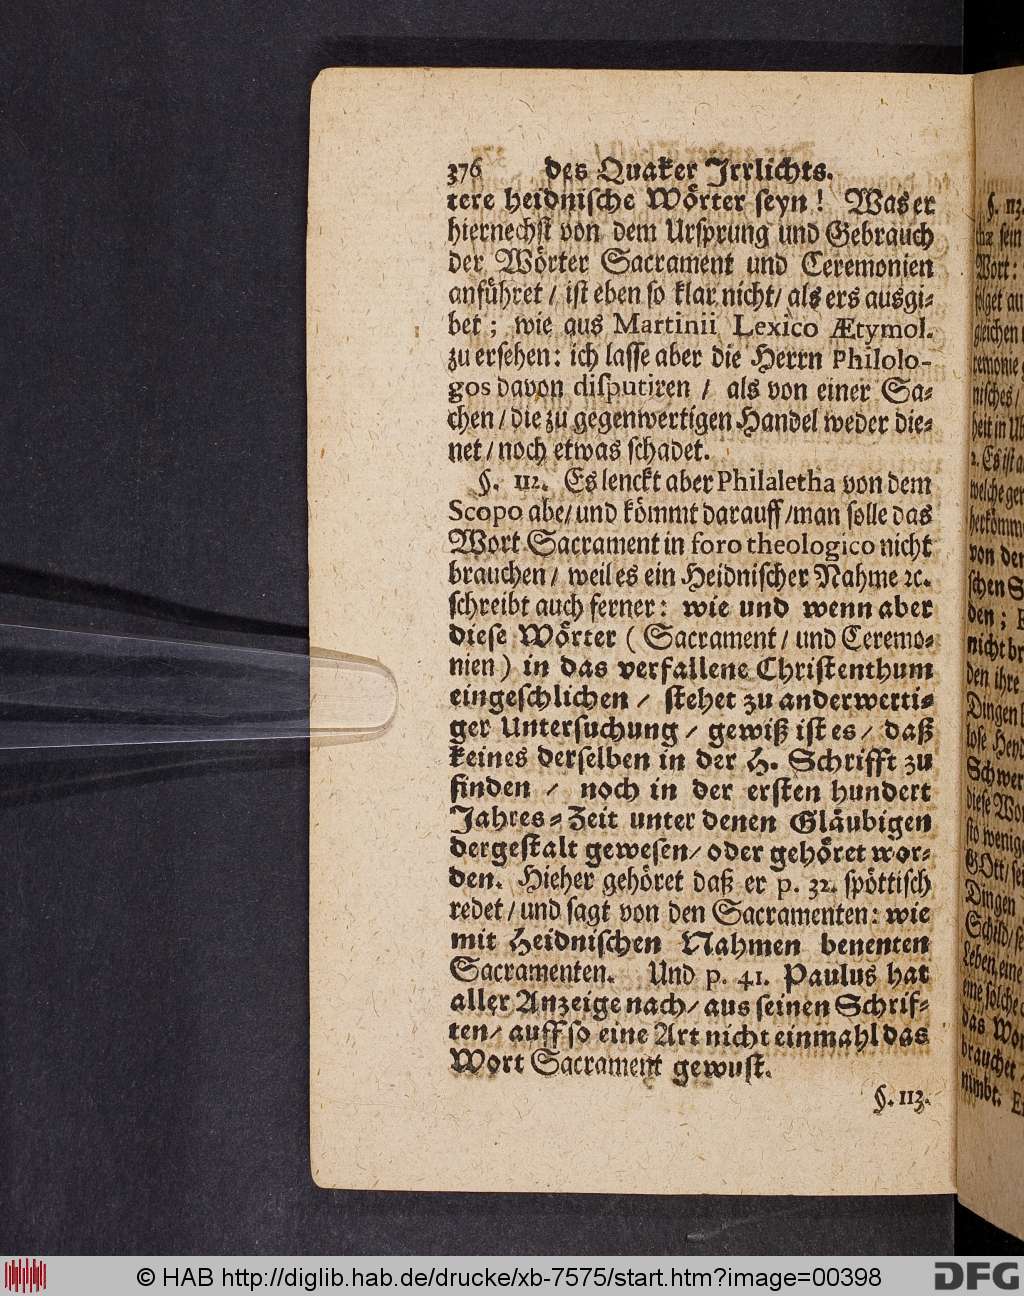 376 des Quaker Irrlichts.
tere heidnische Wörter seyn! Was er
hiernechst von dem Ursprung und Gebrauch
der Wörter Sacrament und Ceremonien
anführet / ist eben so klar nicht / als ers ausgi⸗
bet; wie aus Martinii Lexico Ætymol.
zu ersehen: ich lasse aber die Herrn Philolo-
gos davon disputiren / als von einer Sa⸗
chen / die zu gegenwertigen Handel weder die⸗
net / noch etwas schadet.
§. 112. Es lenckt aber Philaletha von dem
Scopo abe / und kömmt darauff / man solle das
Wort Sacrament in foro theologico nicht
brauchen / weil es ein Heidnischer Nahme ꝛc.
schreibt auch ferner: wie und wenn aber
diese Wörter (Sacrament / und Ceremo⸗
nien) in das verfallene Christenthum
eingeschlichen / stehet zu anderwerti⸗
ger Untersuchung / gewiß ist es / daß
keines derselben in der H. Schrifft zu
finden / noch in der ersten hundert
Jahres⸗Zeit unter denen Gläubigen
dergestalt gewesen / oder gehöret wor⸗
den. Hieher gehöret daß er p. 32. spöttisch
redet / und sagt von den Sacramenten: wie
mit Heidnischen Nahmen benenten
Sacramenten. Und p. 41. Paulus hat
aller Anzeige nach / aus seinen Schrif⸗
ten / auff so eine Art nicht einmahl das
Wort Sacrament gewust.
§. 113.
§. 113.
sein
Wort:
folget
gleichen
remonie
nisches /
heit in
2. Es ist
welche
herkomm
von der
schen S
den;
nicht br
den ihre
Dingen
lose Heyd
Schwer
diese Wor
wenig
GOtt / sei
Dingen
Schild / se
Leben, eine
eine solche
das Wor
brauchet
nimbt.
© HAB http://diglib.hab.de/drucke/xb-7575/start.htm?image=00398
DFG